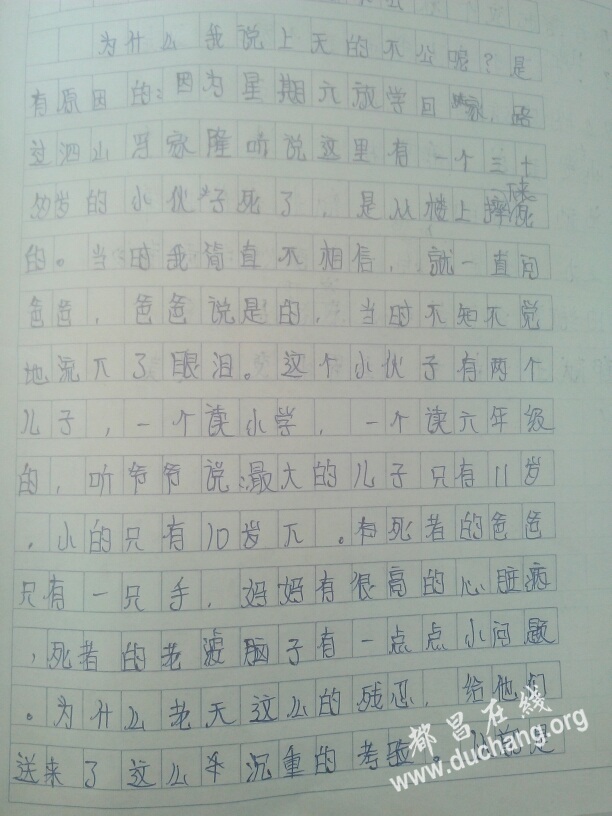 为什么我说上天的不公呢？是
有原因的：因为星期六放学回家，路
过泗山冯家隆听说这里有一个三十
岁的小伙子死了，是从楼上摔死
的。当时我简直不相信，就一直问
爸爸，爸爸说是的，当时不知不觉
地流下了眼泪。这个小伙子有两个
儿子，一个读小学，一个读六年级
的，听爷爷说：最大的儿子只有11岁
，小的只有10岁不。和死者的爸爸
只有一只手，妈妈有很高的心脏病
，死者的老婆脑子有一点点小问题
。为什么老天这么的残忍，给他们
送来了这么沉重的考验。是
都昌在线
www.duchang.org